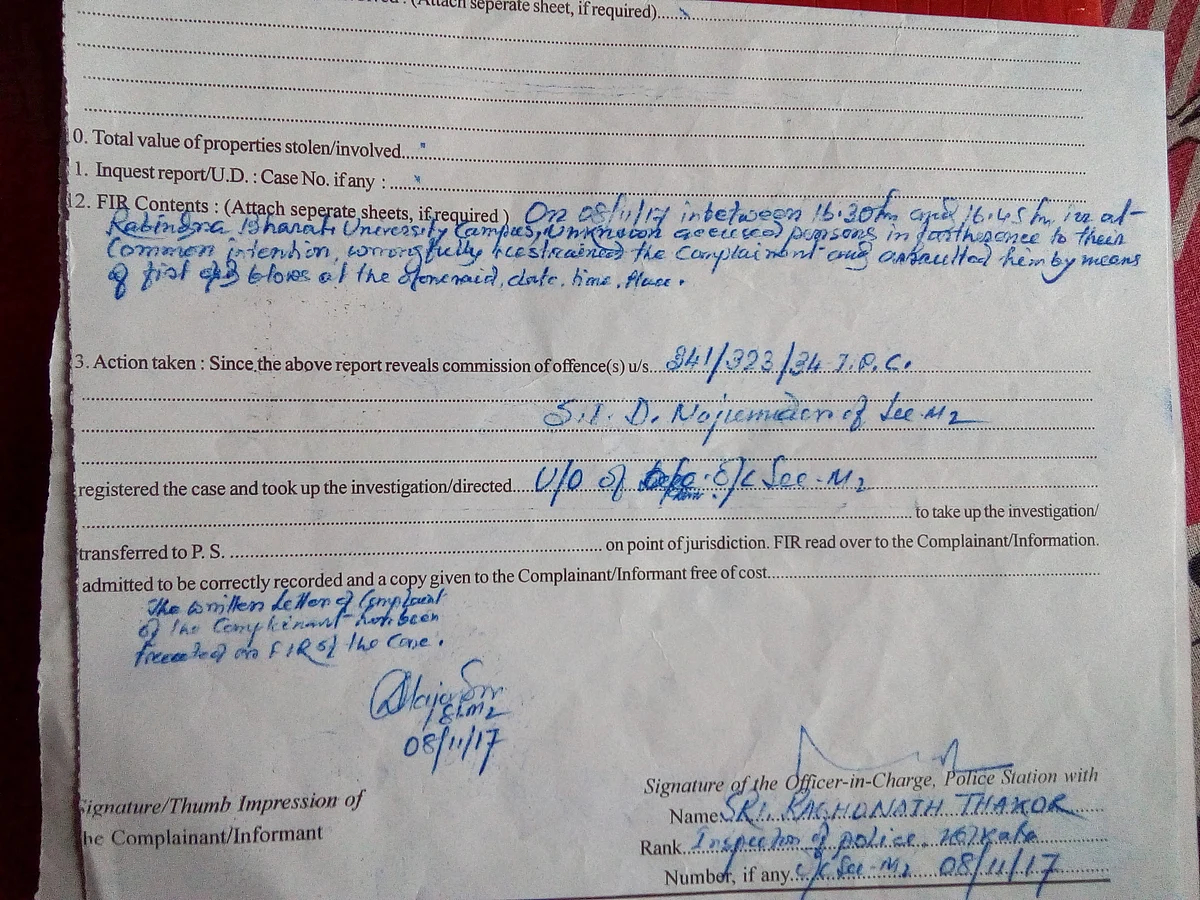 (Attach seperate sheet, if required)......
0. Total value of properties stolen/involved... "
1. Inquest report/U.D. : Case No. if any : ..... "
12. FIR Contents : (Attach seperate sheets, if required ) On 08/11/17 inbetween 16.30hrs and 16.45 hrs in at-
Rabindra Bharati University Campus, Unknown accused persons in fartherence to their
Common intention, wrongfully restrained the complainant and assaulted him by means
of fist blows at the aforesaid, date, time, place.
3. Action taken : Since the above report reveals commission of offence(s) u/s... 341/323/34 I.P.C.
S.I. D. of Sec-M2
registered the case and took up the investigation/directed... U/O of O/C Sec-M2
to take up the investigation/
transferred to P. S. ........ on point of jurisdiction. FIR read over to the Complainant/Information.
admitted to be correctly recorded and a copy given to the Complainant/Informant free of cost......
The written Letter of Complaint
of the Complainant has been
treated as FIR of the Case.
08/11/17
Signature of the Officer-in-Charge, Police Station with
Signature/Thumb Impression of
Name SRI. RAGHUNATH THAKUR
he Complainant/Informant
Rank. Inspector of police, Kolkata
Number, if any. O/C Sec-M2 08/11/17